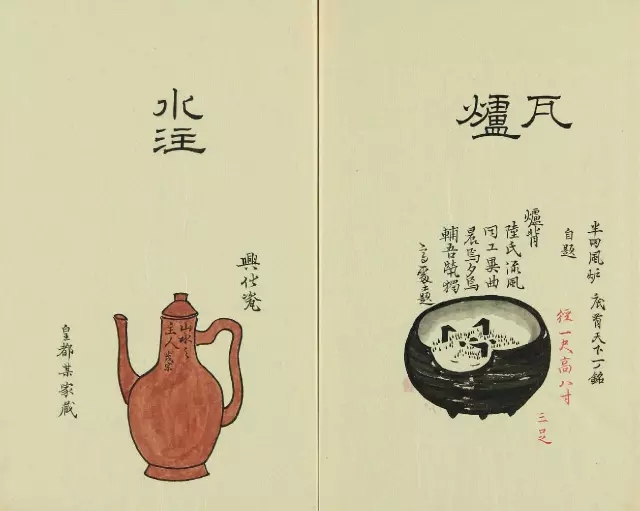 瓦爐
半田風炉 底有天下一銘
自題
徑一尺高八寸
三足
爐背
陸氏流風
同工異曲
晨焉夕焉
輔吾煢獨
題
水注
山水
主人
皇都某家蔵